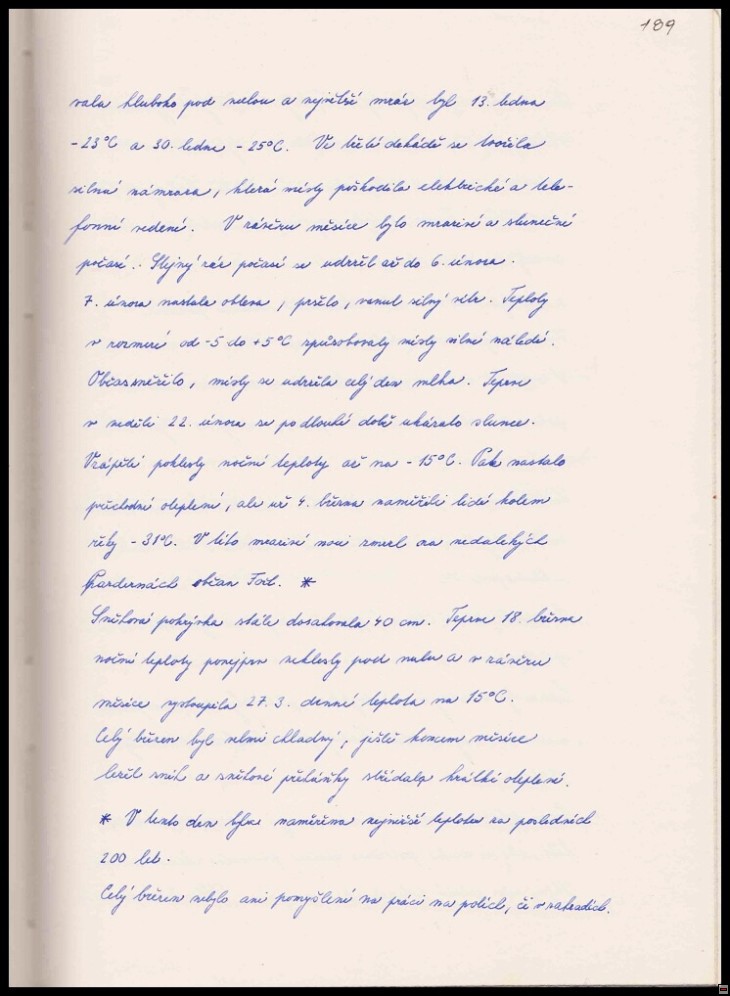 189
vala hluboko pod nulou a největší mráz byl 13. ledna
-23°C a 30. ledna -25°C. Ve třetí dekádě se tvořila
silná námraza, která místy poškodila elektrické a tele-
fonní vedení. V závěru měsíce bylo mrazivé a slunečné
počasí. Stejný ráz počasí se udržel až do 6. února.
7. února nastala obleva, pršelo, vanul silný vítr. Teploty
v rozmezí od -5 do +5°C způsobovaly místy silné náledí.
Občas sněžilo, místy se udržela celý den mlha. Teprve
v neděli 22. února se po dlouhé době ukázalo slunce.
Vzápětí poklesly noční teploty až na -15°C. Pak nastalo
přechodné oteplení, ale už 4. března naměřili lidé kolem
řeky -31°C. V této mrazivé noci zmrzl na nedalekých
občan *
Sněhová pokrývka stále dosahovala 40 cm. Teprve 18. března
noční teploty ponejprv neklesly pod nulu a v závěru
měsíce vystoupila 27. 3. denní teplota na 15°C.
Celý březen byl velmi chladný, ještě koncem měsíce
ležel sníh a sněhové přeháňky střídalo krátké oteplení.
* V tento den byla naměřena nejnižší teplota za posledních
200 let.
Celý březen nebylo ani pomyšlení na práci na polích, či v zahradách.